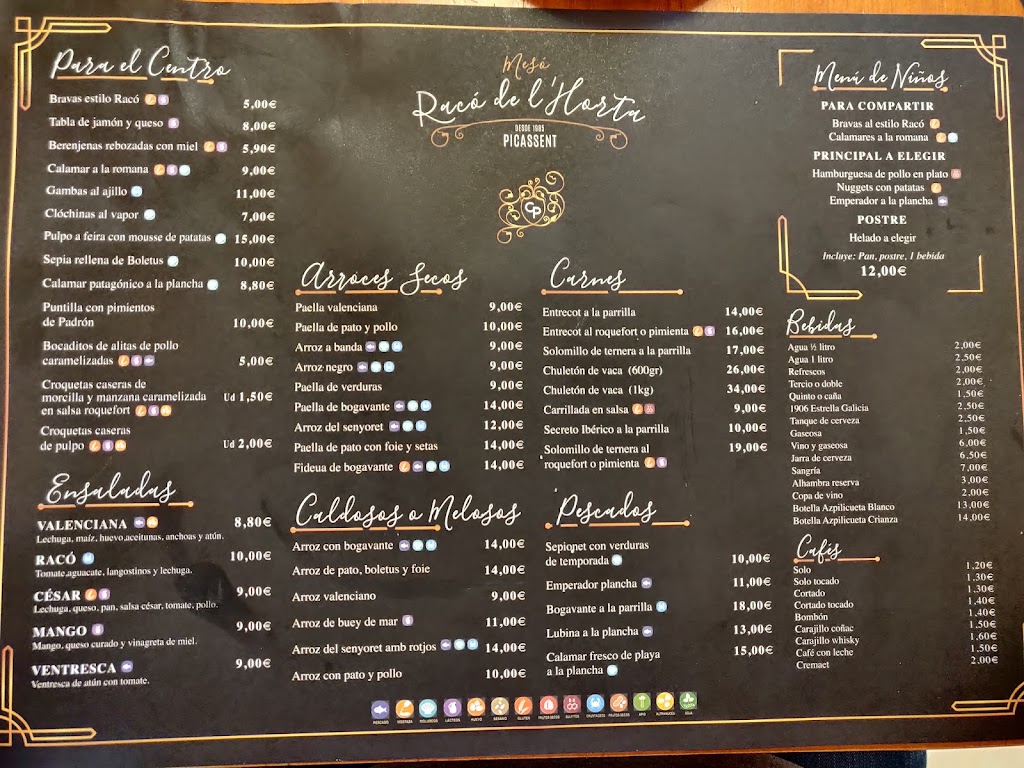 Mesó
Racó de l'Horta
DESDE 1985
PICASSENT
CP
Para el Centro
Bravas estilo Racó 5,00€
Tabla de jamón y queso 8,00€
Berenjenas rebozadas con miel 5,90€
Calamar a la romana 9,00€
Gambas al ajillo 11,00€
Clóchinas al vapor 7,00€
Pulpo a feira con mousse de patatas 15,00€
Sepia rellena de Boletus 10,00€
Calamar patagónico a la plancha 8,80€
Puntilla con pimientos
de Padrón 10,00€
Bocaditos de alitas de pollo
caramelizadas 5,00€
Croquetas caseras de
morcilla y manzana caramelizada Ud 1,50€
en salsa roquefort
Croquetas caseras
de pulpo Ud 2,00€
Ensaladas
VALENCIANA 8,80€
Lechuga, maíz, huevo,aceitunas, anchoas y atún.
RACÓ 10,00€
Tomate,aguacate, langostinos y lechuga.
CÉSAR 9,00€
Lechuga, queso, pan, salsa césar, tomate, pollo.
MANGO 9,00€
Mango, queso curado y vinagreta de miel.
VENTRESCA 9,00€
Ventresca de atún con tomate.
Arroces Secos
Paella valenciana 9,00€
Paella de pato y pollo 10,00€
Arroz a banda 9,00€
Arroz negro 9,00€
Paella de verduras 9,00€
Paella de bogavante 14,00€
Arroz del senyoret 12,00€
Paella de pato con foie y setas 14,00€
Fideua de bogavante 14,00€
Caldosos o Melosos
Arroz con bogavante 14,00€
Arroz de pato, boletus y foie 14,00€
Arroz valenciano 9,00€
Arroz de buey de mar 11,00€
Arroz del senyoret amb rotjos 14,00€
Arroz con pato y pollo 10,00€
Carnes
Entrecot a la parrilla 14,00€
Entrecot al roquefort o pimienta 16,00€
Solomillo de ternera a la parrilla 17,00€
Chuletón de vaca (600gr) 26,00€
Chuletón de vaca (1kg) 34,00€
Carrillada en salsa 9,00€
Secreto Ibérico a la parrilla 10,00€
Solomillo de ternera al 19,00€
roquefort o pimienta
Pescados
Sepionet con verduras
de temporada 10,00€
Emperador plancha 11,00€
Bogavante a la parrilla 18,00€
Lubina a la plancha 13,00€
Calamar fresco de playa 15,00€
a la plancha
Menú de Niños
PARA COMPARTIR
Bravas al estilo Racó
Calamares a la romana
PRINCIPAL A ELEGIR
Hamburguesa de pollo en plato
Nuggets con patatas
Emperador a la plancha
POSTRE
Helado a elegir
Incluye: Pan, postre, 1 bebida
12,00€
Bebidas
Agua ½ litro 2,00€
Agua 1 litro 2,50€
Refrescos 2,00€
Tercio o doble 2,00€
Quinto o caña 1,50€
1906 Estrella Galicia 2,50€
Tanque de cerveza 2,50€
Gaseosa 1,50€
Vino y gaseosa 6,00€
Jarra de cerveza 6,50€
Sangría 7,00€
Alhambra reserva 3,00€
Copa de vino 2,00€
Botella Azpilicueta Blanco 13,00€
Botella Azpilicueta Crianza 14,00€
Cafés
Solo 1,20€
Solo tocado 1,30€
Cortado 1,30€
Cortado tocado 1,40€
Bombón 1,40€
Carajillo coñac 1,50€
Carajillo whisky 1,60€
Café con leche 1,50€
Cremaet 2,00€
PESCADO MOSTAZA MOLUSCOS LÁCTEOS HUEVO SÉSAMO GLUTEN FRUTOS SECOS SULFITOS CRUSTÁCEOS FRUTOS SECOS APIO ALTRAMUCES SOJA